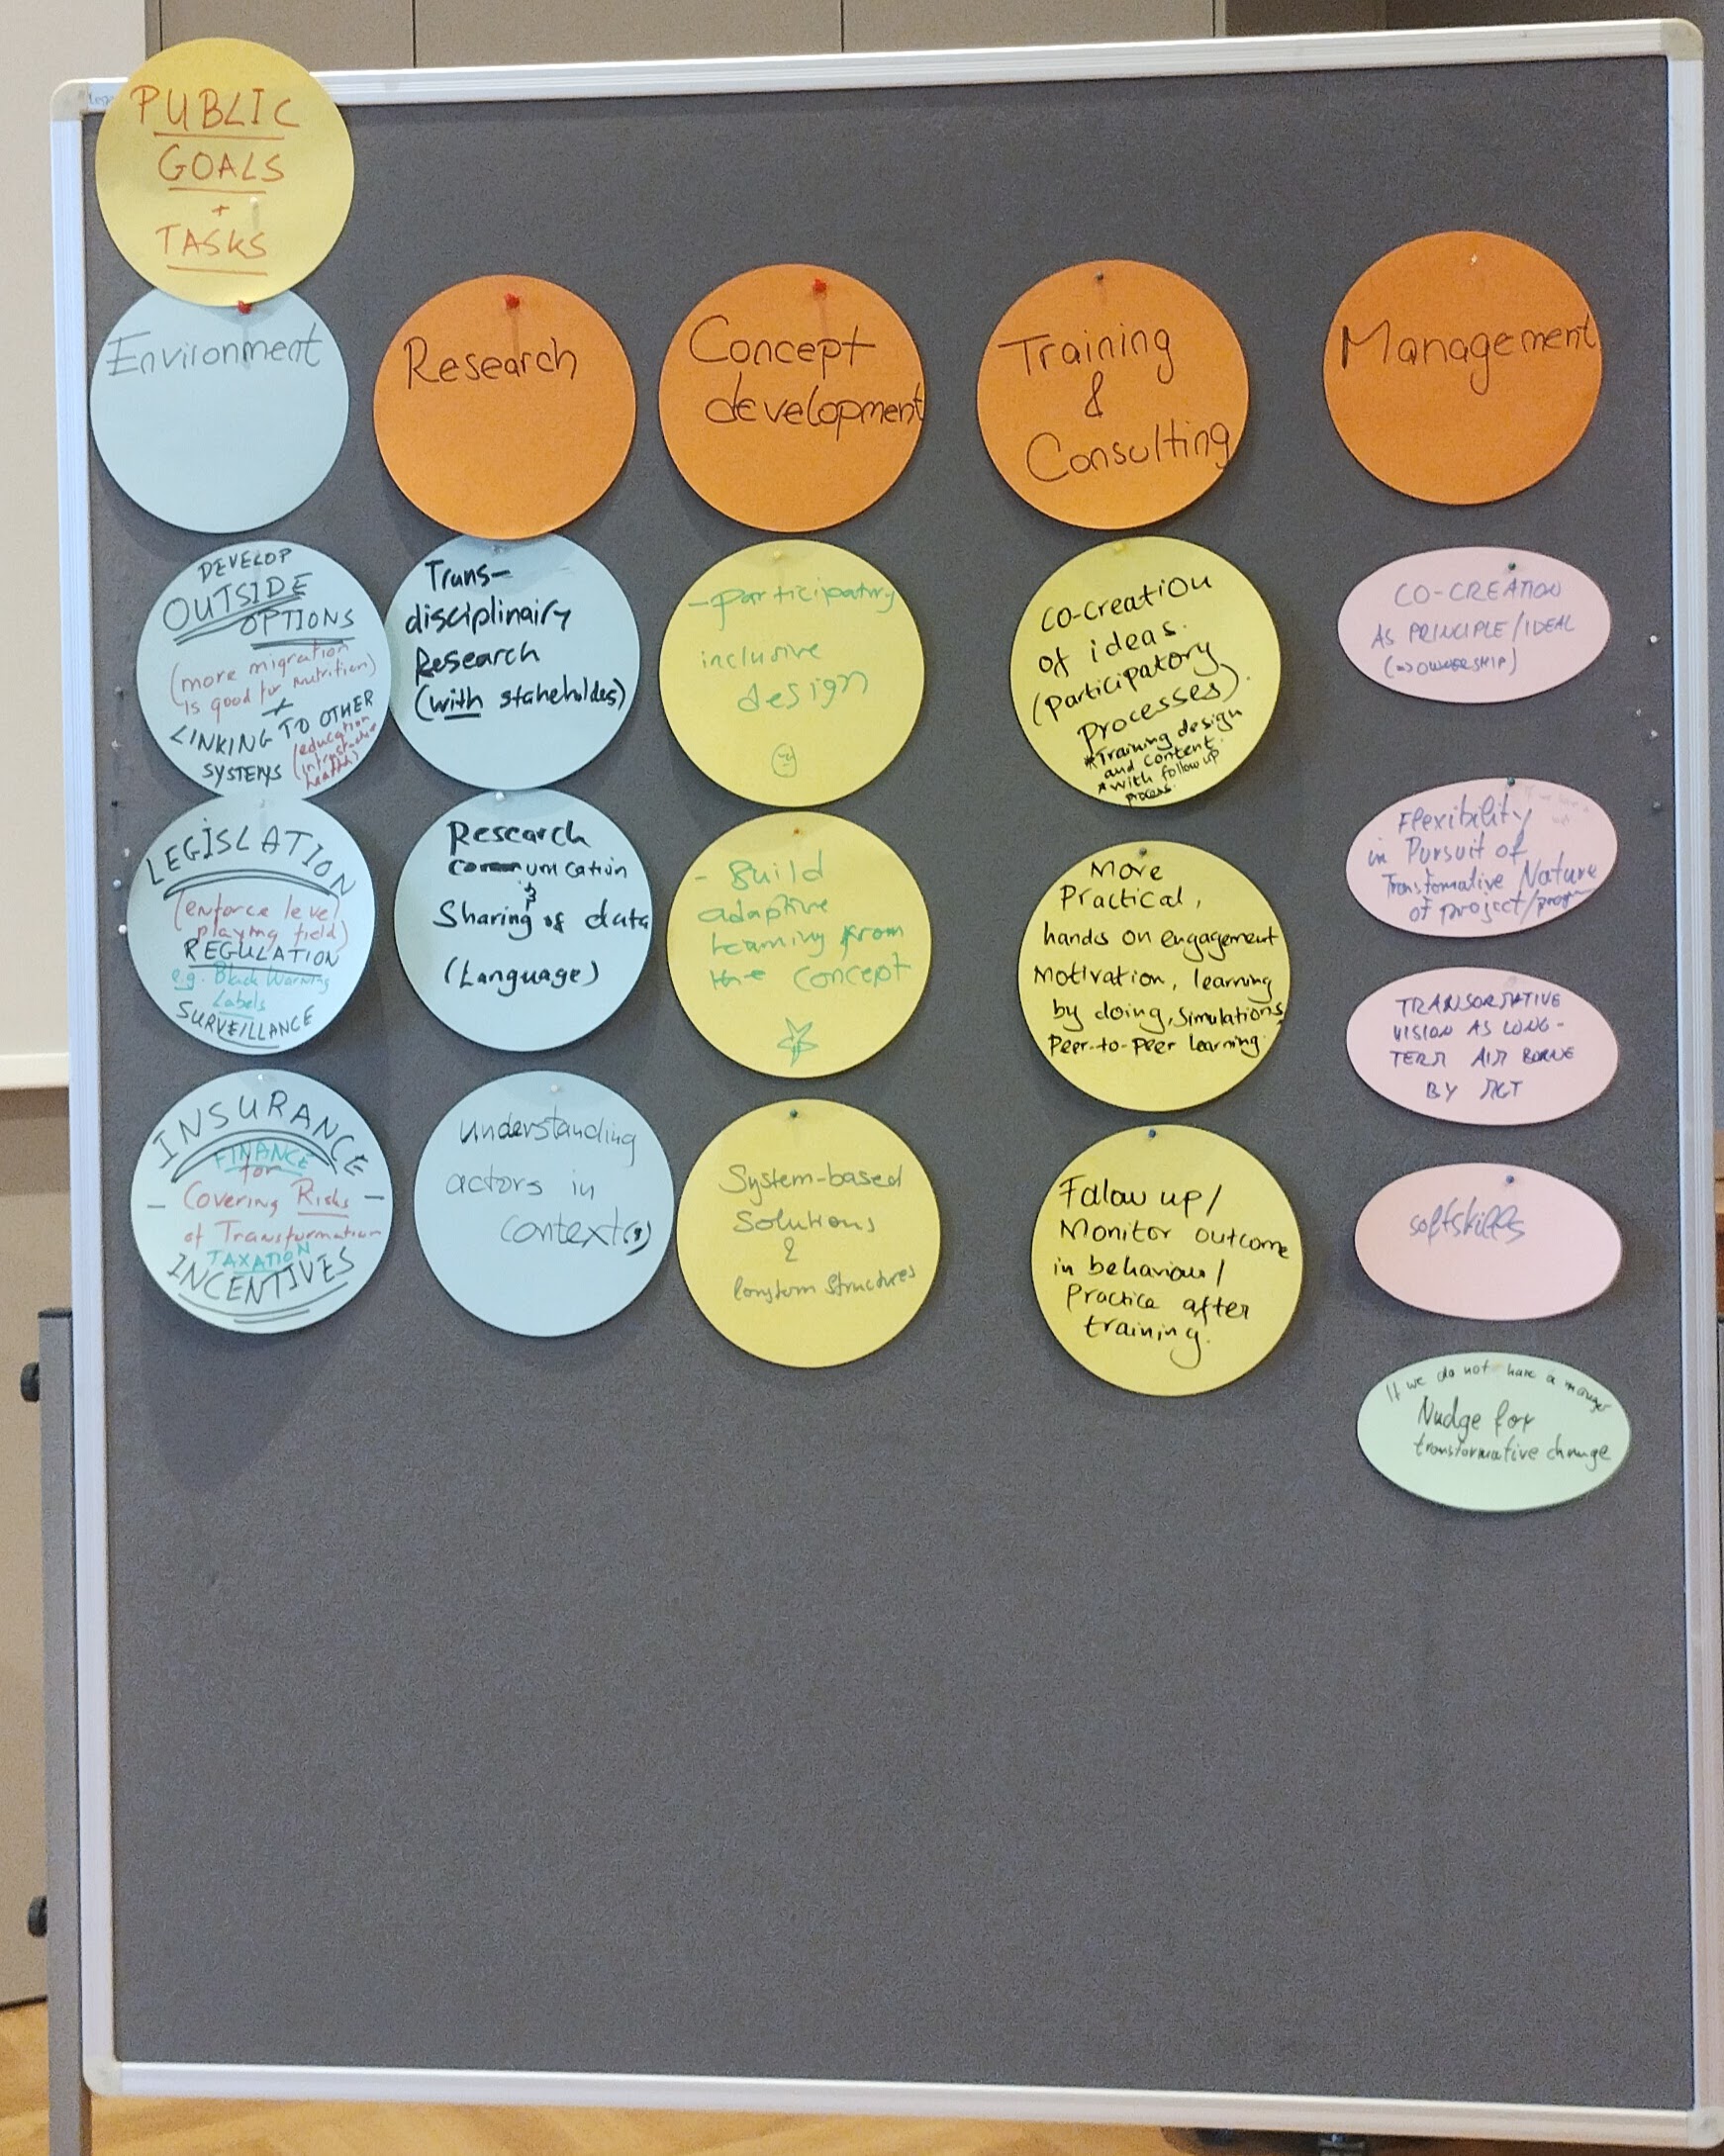 PUBLIC
GOALS
+
TASKS
Environment
DEVELOP
OUTSIDE
OPTIONS
(more migration
is good for nutrition)
+
LINKING TO OTHER
SYSTEMS
(education
health)
LEGISLATION
(enforce level
playing field)
REGULATION
e.g. Black Warning
Labels
SURVEILLANCE
INSURANCE
FINANCE
for
- Covering Risks -
of Transformation
TAXATION
INCENTIVES
Research
Trans-
disciplinairy
Research
(with stakeholdes)
Research
communication
&
Sharing of data
(Language)
understanding
actors in
context(s)
Concept
development
- participatory
inclusive
design
- Build
adaptive
learning from
the concept
System-based
Solutions
&
longterm structures
Training
&
Consulting
CO-creation
of ideas.
(Participatory
Processes).
*Training design
and content.
*with follow up
process.
More
Practical,
hands on engagement
Motivation, learning
by doing, Simulations,
Peer-to-Peer learning.
Follow up/
Monitor outcome
in behaviour/
Practice after
training.
Management
CO-CREATION
AS PRINCIPLE/IDEAL
(=> OWNERSHIP)
Flexibility
in Pursuit of
Transformative Nature
of project/progr
TRANSORMATIVE
VISION AS LONG-
TERM AIM BORNE
BY MGT
softskills
If we do not have a manager
Nudge for
transformative change